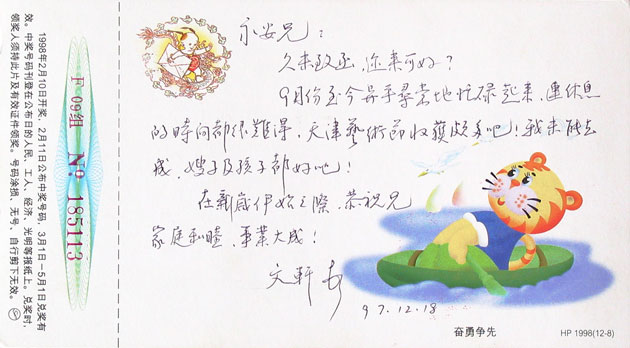 1998年2月10日开奖，2月11日公布中奖号码，3月1日—5月1日兑奖有
效。中奖号码刊登在公布日的人民、工人、经济、光明等报纸上。兑奖时，
领奖人须持此片及有效证件领奖。号码涂损、无号、自行剪下无效。
F 09组 Nº 185113
永安兄：
久未致函，近来可好？
9月份至今异乎尋常地忙碌起来，連休息
的時间都很難得，天津藝術節收獲頗多吧！我未能去
成，嫂子及孩子都好吧！
在新歲伊始之際，恭祝兄
家庭和睦，事業大成！
文軒
97.12.18
奋勇争先
HP 1998(12-8)